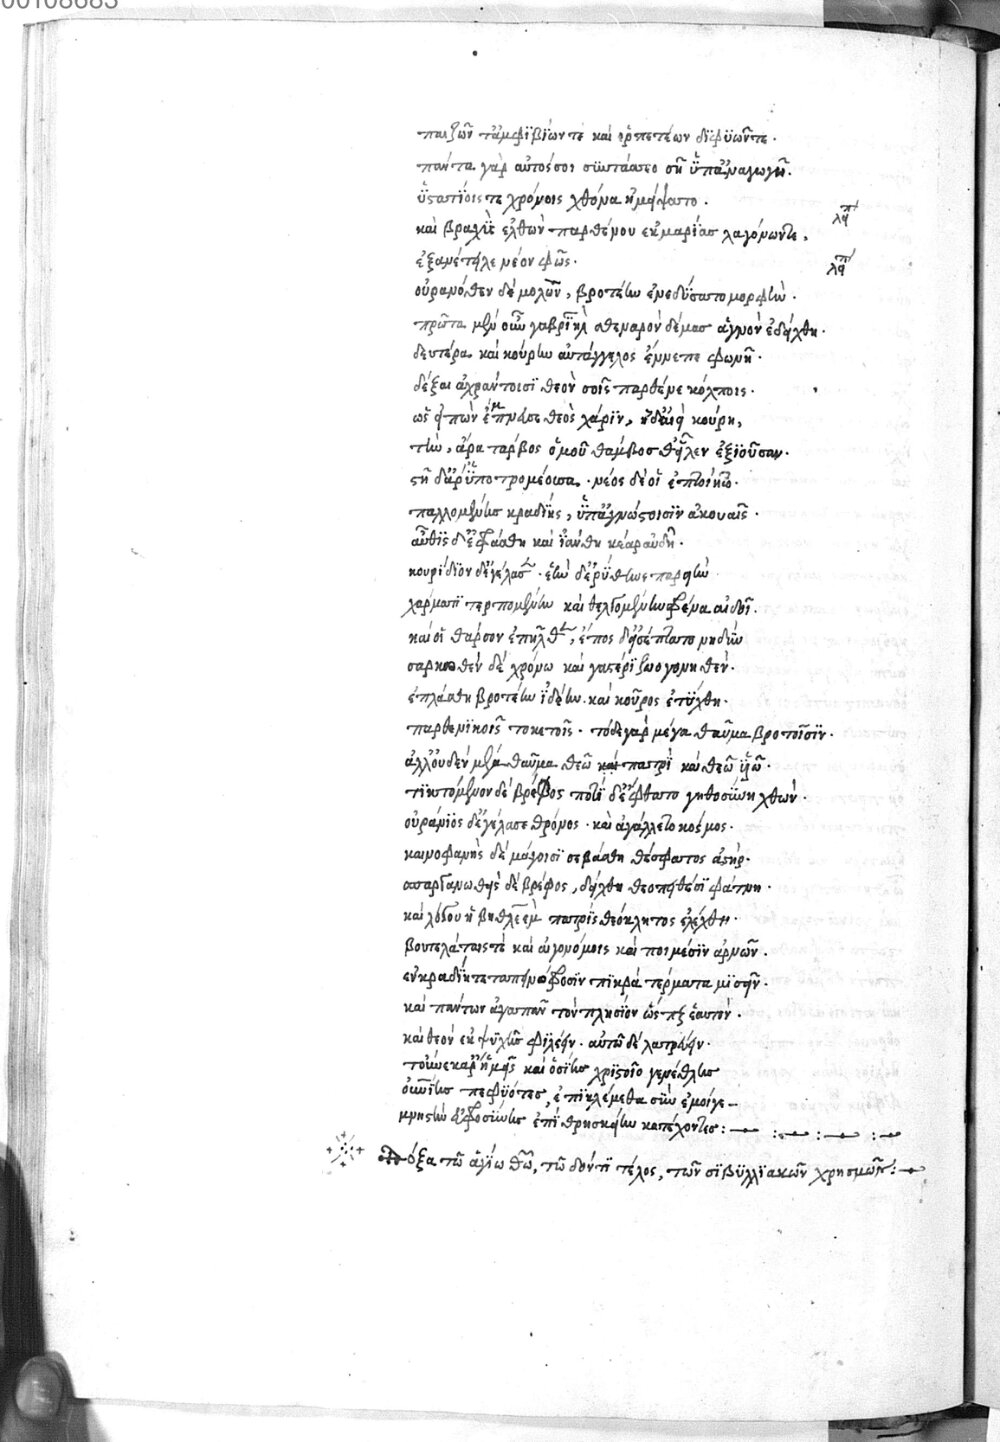 00108683
παιζῶν τ' ἀμφιβίων τε καὶ ἑρπετέων διφυῶν τε·
πάντα γὰρ αὐτὸς σοι συνετάσσεο σῇ ὑπ' ἀναγωγῇ.
ὑστατίοις τε χρόνοις χθόνα
λείπει
καὶ βραχὺς ἐλθὼν παρθένου ἐκ μαρίας λαγόνων τε,
ἐξανέτειλε νέον φῶς·
λείπει
οὐρανόθεν δὲ μολὼν, βροτείην ἐνεδύσατο μορφήν·
πρῶτα μὲν οὖν γαβριὴλ σθεναρὸν δέμας ἁγνὸν ἐδείχθη·
δευτέρα καὶ κούρην αὐτάγγελος ἔννεπε φωνῇ·
δέξαι ἀχράντοισι θεὸν σοῖς παρθένε κόλποις·
ὡς εἰπὼν ἔμπνευσε θεὸς χάριν, ἡ δὲ κούρη,
τὴν, ἄρα τάρβος ὁμοῦ θάμβος θ' εἷλεν εἰσαΐουσαν·
στῆ δ' ἄρ' ὑποτρομέουσα· νόος δέ οἱ ἐπτοίητο·
παλλομένης κραδίης, ὑπ' ἀγνώστοισιν ἀκουαῖς·
αὖθις δ' εὐφράνθη καὶ ἰάνθη κέαρ αὐδῇ·
κουρίδιον δ' ἐγέλασεν· ἑὴν δ' ἐρύθηνε παρειήν
χάρματι τερπομένην καὶ θελγομένην φρένα αἰδοῖ·
καὶ οἱ θάρσος ἐπῆλθεν, ἔπος δ' εἰσέπτατο νηδύν
σαρκωθὲν δὲ χρόνῳ καὶ γαστέρι ζωογονηθέν·
ἐπλάσθη βροτέην ἰδέην· καὶ κοῦρος ἐτύχθη·
παρθενικοῖς τοκετοῖς· τόδε γὰρ μέγα θαῦμα βροτοῖσιν·
ἀλλ' οὐδὲν μέγα θαῦμα θεῷ καὶ πατρὶ καὶ θεῷ υἱῷ·
τικτόμενον δὲ βρέφος ποτὶ δ' ἔφθατο γηθοσύνη χθών·
οὐράνιος δ' ἐγέλασε θρόνος· καὶ ἀγάλλετο κόσμος·
καινοφανὴς δὲ μάγοισι σεβάσθη θέσφατος ἀστήρ·
σπαργανωθεὶς δὲ βρέφος, δείχθη θεοπειθέσι φάτνῃ·
καὶ λόγου ἡ βηθλεὲμ πατρὶς θεόκλητος ἐλέχθη·
βουτελάταις τὲ καὶ αἰγονόμοις καὶ ποιμέσιν ἀρνῶν·
ἐν κραδίῃ τε ταπεινοφροσῖν πικρὰ τέρματα μισεῖν·
καὶ πάντων ἀγαπᾶν τὸν πλησίον ὥσπερ ἑαυτόν·
καὶ θεὸν ἐκ ψυχῆς φιλέειν· αὐτῷ δὲ λατρεύειν·
τοὔνεκ' ἄρ' ἡμεῖς καὶ ὁσίης χριστοῖο γενέθλης
οὐρανίης πεφυότες, ἐπικλεόμεθα σύναιμοι γε
μνῆστιν εὐφροσύνης ἐπὶ θρησκείην κατέχοντες :— :— :— :—
Δόξα τῷ ἁγίῳ θεῷ, τῷ δόντι τέλος, τῶν σιβυλλιακῶν χρησμῶν :—